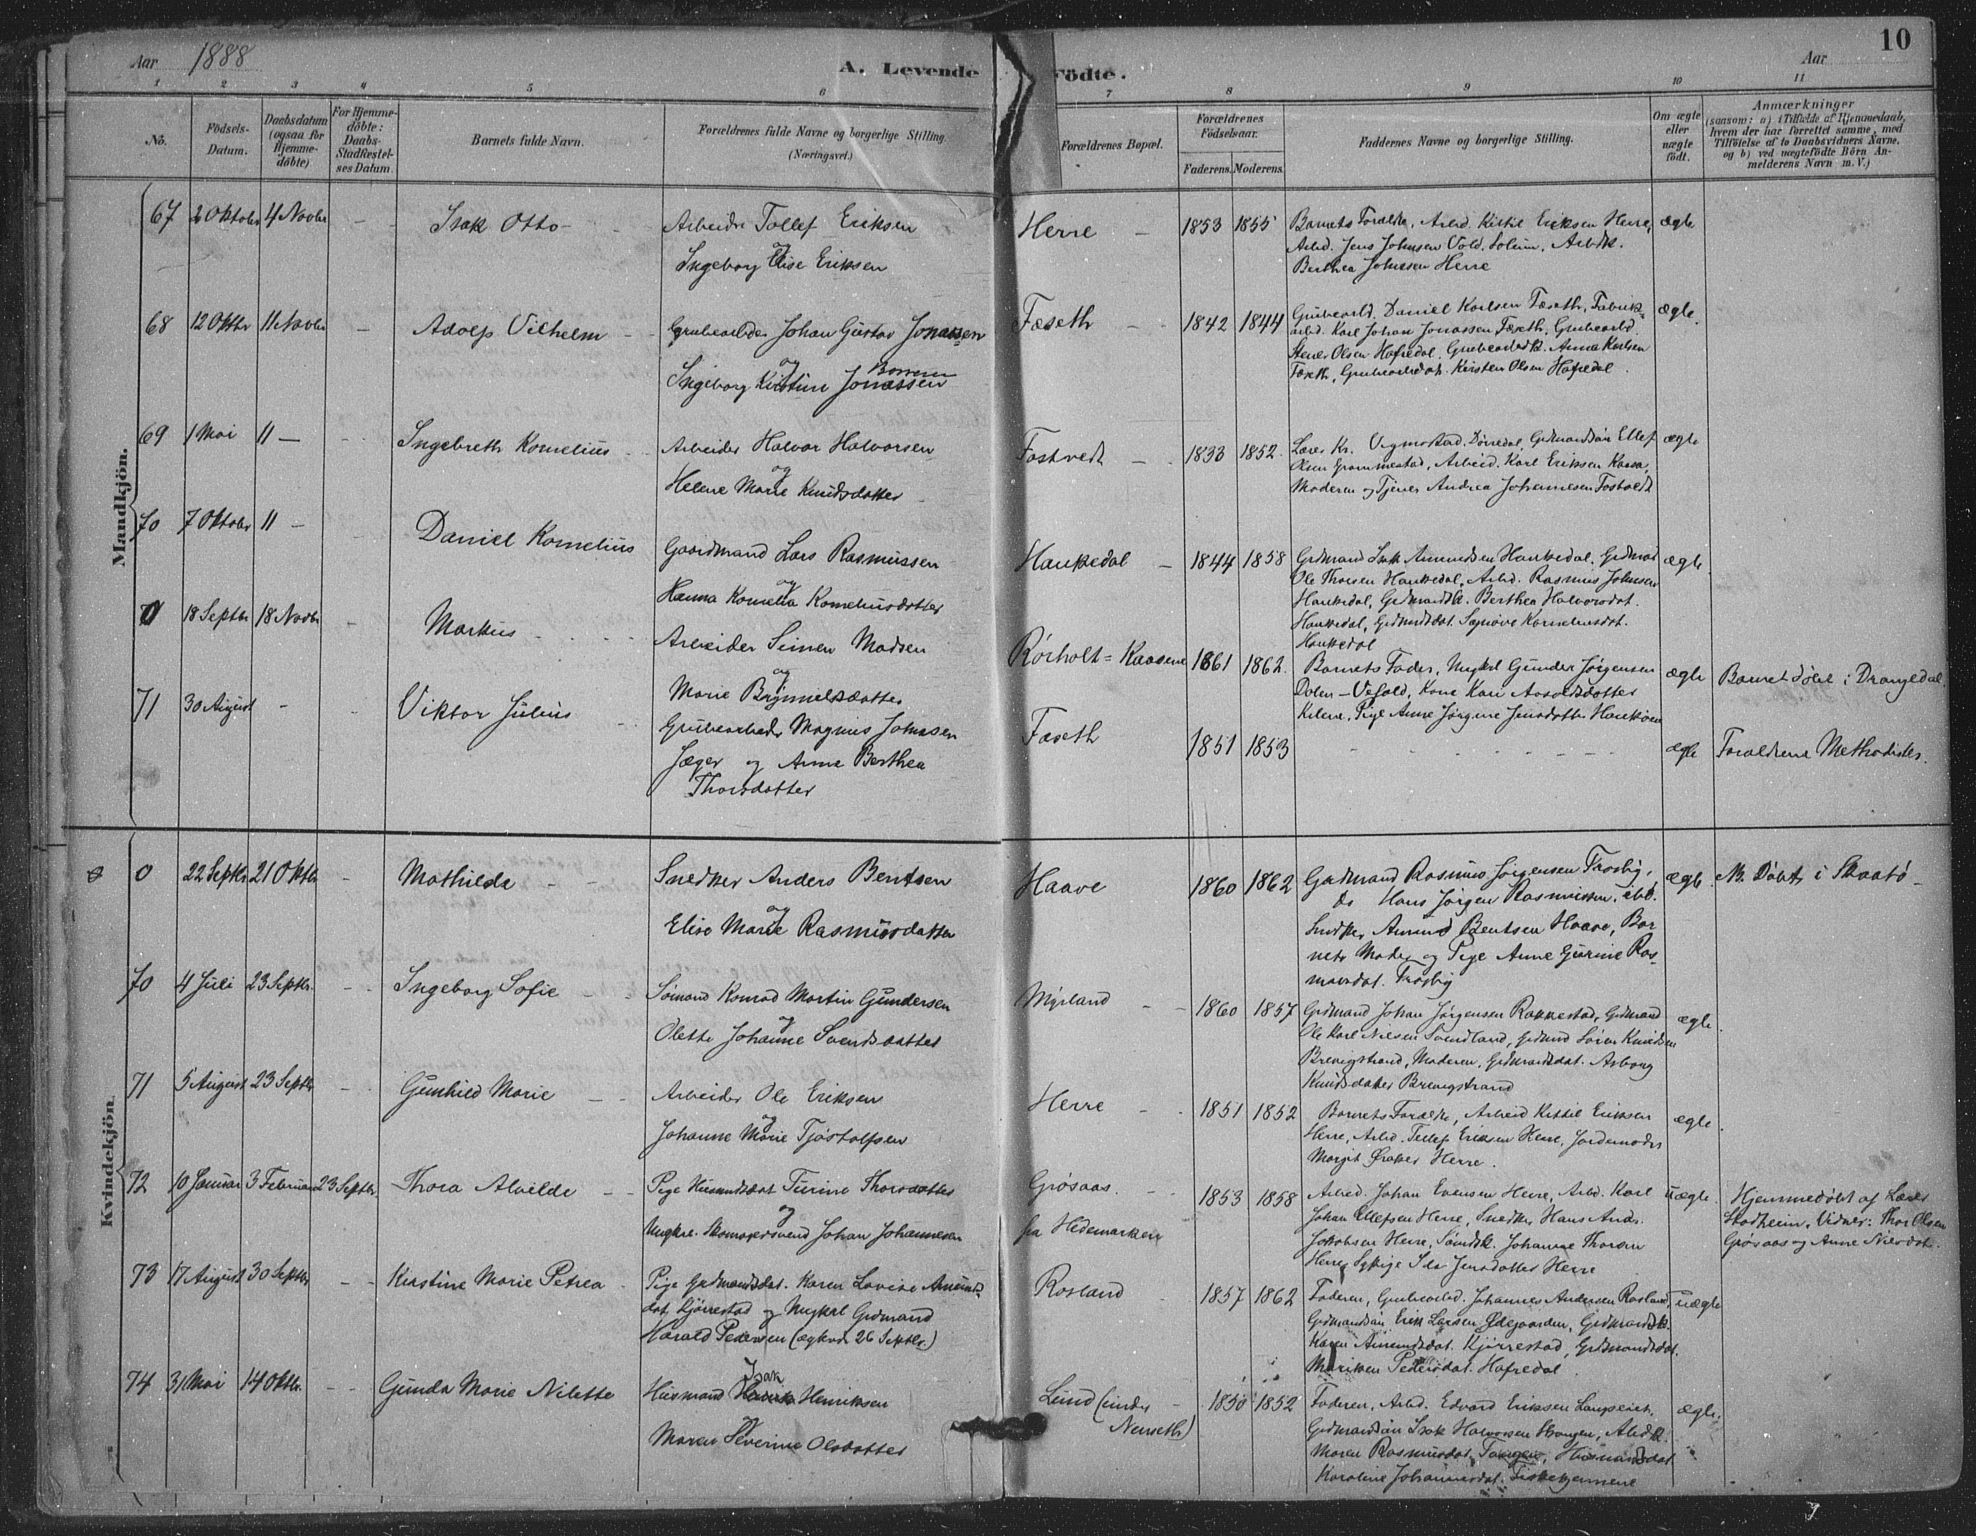 Aar 1888
A. Levende Födte.
Aar
10
1 2 3 4 5 6 7 8 9 10 11
No.
Födsels-
Datum.
Daabsdatum
(ogsaa for
Hjemme-
döbte)
For Hjemme-
döbte:
Daabs-
Stadfæstel-
ses Datum.
Barnets fulde Navn.
Forældrenes fulde Navne og borgerlige Stilling.
(Næringsvei.)
Forældrenes Bopæl.
Forældrenes
Födselsaar.
Faderens. Moderens.
Faddernes Navne og borgerlige Stilling.
Om ægte
eller
uægte
födt.
Anmærkninger
(saasom: a) i Tilfælde af Hjemmedaab,
hvem der har forrettet samme, med
Tilföielse af to Daabsvidners Navne.
og b) ved uægtefödte Börn An-
melderens Navn m. V.)
Mandkjön.
67 2 Oktober 4 Novbr Isak Otto Arbeider Tollef Eriksen
og
Ingeborg Elise Eriksen
Herre 1853 1855 Barnets Forældre, Arbd. Kittil Eriksen Herre,
Arbd. Jens Johnsen Vold, Solum, Arbdk.
Berthea Johnsen Herre
ægte
68 12 Oktbr 11 Novbr Adolf Vilhelm Grubearbeider Johan Gustav Jonassen
og
Ingeborg Kirstine Jonassen
Fæseth 1842 1844 Grubearbd. Daniel Karlsen Fæseth, Fabrik-
arbd. Karl Johan Jonassen Fæseth, Grubearbd.
Stener Olsen Hafredal, Grubearbdk. Anna Karlsen
Fæseth, Grubearbdat. Kirsten Olsen Hafredal.
ægte.
69 1 Mai 11 — Ingebreth Kornelius Arbeider Halvor Halvorsen
og
Helene Marie Knudsdatter
Fostvedt 1833 1852. Lærer Kr. Vegmostad, Dörredal, Grdmandssön Ellef
Olsen Grommestad, Arbeid. Karl Eriksen Kaasa,
Moderen og Tjener Andrea Johannesen Fostvedt
ægte
70 7 Oktobr 11 — Daniel Kornelius Gaardmand Lars Rasmussen
og
Hanna Kornelia Korneliusdatter
Haukedal 1844 1858 Grdmand Isak Amundsen Haukedal, Grdmand
Ole Thorsen Haukedal, Arbd. Rasmus Johnsen
Haukedal, Grdmandsk. Berthea Halvorsdat.
Haukedal, Grdmandsdat. Sagnöve Korneliusdat.
Haukedal
ægte.
0 18 Septbr 18 Novbr Markus Arbeider Simen Madsen
og
Marie Brynnelsdatter
Rörholt-Kaasene 1861 1862. Barnets Fader, Ungkrl Gunder Jörgensen
Dolen-Vefald, Kone Kari Aasoldsdatter
Kilene, Pige Anne Jörgine Jensdatter
ægte Barnet döbt i Drangedal.
71 30 August - - Viktor Julius Grubearbeider Magnus Johnsen
Jæger og Anne Berthea
Thorsdatter
Fæseth 1851 1853 ægte Forældrene Methodister.
Kvindekjön.
0 22 Septbr 21 Oktbr Mathilde Snedker Anders Bentsen
og
Elise Marie Rasmusdatter
Haave 1860 1862 Grdmand Rasmus Jörgensen Frosbig,
do Hans Jörgen Rasmussen, ibd.
Snedker Amund Bentsen Haave, Bar-
nets Moder og Pige Anne Gurine Ras-
musdat. Frosbig
ægte. N. Döbt i Skaatö
70 4 Juli 23 Septbr. Ingeborg Sofie Sömand Konrad Martin Gundersen
og
Olette Johanne Svendsdatter
Myrland 1860 1857 Grdmand Johan Jörgensen Rakkestad, Grdmand
Ole Karl Nielsen Svendland, Grdmand Sören Knudsen
Brevigstrand, Moderen, Grdmandsdat. Asborg
Knudsdatter Brevigstrand
ægte.
71 5 August 23 Septbr Gunhild Marie Arbeider Ole Eriksen
og
Johanne Marie Tjöstolfsen
Herre 1851 1852 Barnets Forældre, Arbeid Kittil Eriksen
Herre, Arbd. Tellef Eriksen Herre, Jordemoder
Margit Ører Herre.
ægte.
72 10 Januar 3 Februar 23 Septbr. Thora Alvilde Pige Husmandsdat Turine Thorsdatter
og
Ungkrl. Skomagersvend Johan Johannesen
Grösaas.
fra Hedemarken
1853 1858 Arbed. Johan Evensen Herre, Arbd. Karl
Johan Ellefsen Herre, Snedker Hans Andr.
Jakobsen Herre, Sömdsk. Johanne Thoran
Herre, Sypige Ida Jensdatter Herre
uægte. Hjemmedöbt af Lærer
Stadheim, Vidner: Thor Olsen
Grösaas og Anne Nilsdat.
73 17 August 30 Septbr. Kirstine Marie Petrea Pige Grdmandsdat. Karen Lovise Amunds-
dat. Kjörrestad og Ungkrl Grdmand
Harald Pedersen (ægtevd. 26 Septbr.)
Rosland 1857 1862 Faderen, Grubearbd. Johannes Andersen Rosland,
Grdmandssön Erik Larsen Ödegaarden, Grdmandsk.
Karen Amundsdat. Kjörrestad, Grdmandsdat.
Mariken Pedersdat. Hafredal.
uægte
74 31 Mai 14 Oktbr. Gunda Marie Nilette Husmand Isak Henriksen
og
Maren Severine Olsdatter
Lund (under
Nenseth)
1850 1852 Faderen, Arbd. Edvard Eriksen Langseiet,
Grdmandssön Isak Halvorsen Haugen, Arbdk.
Maren Rasmusdat. Husmandsdat
Karoline Johannesdat. Fiskekjernene
ægte.